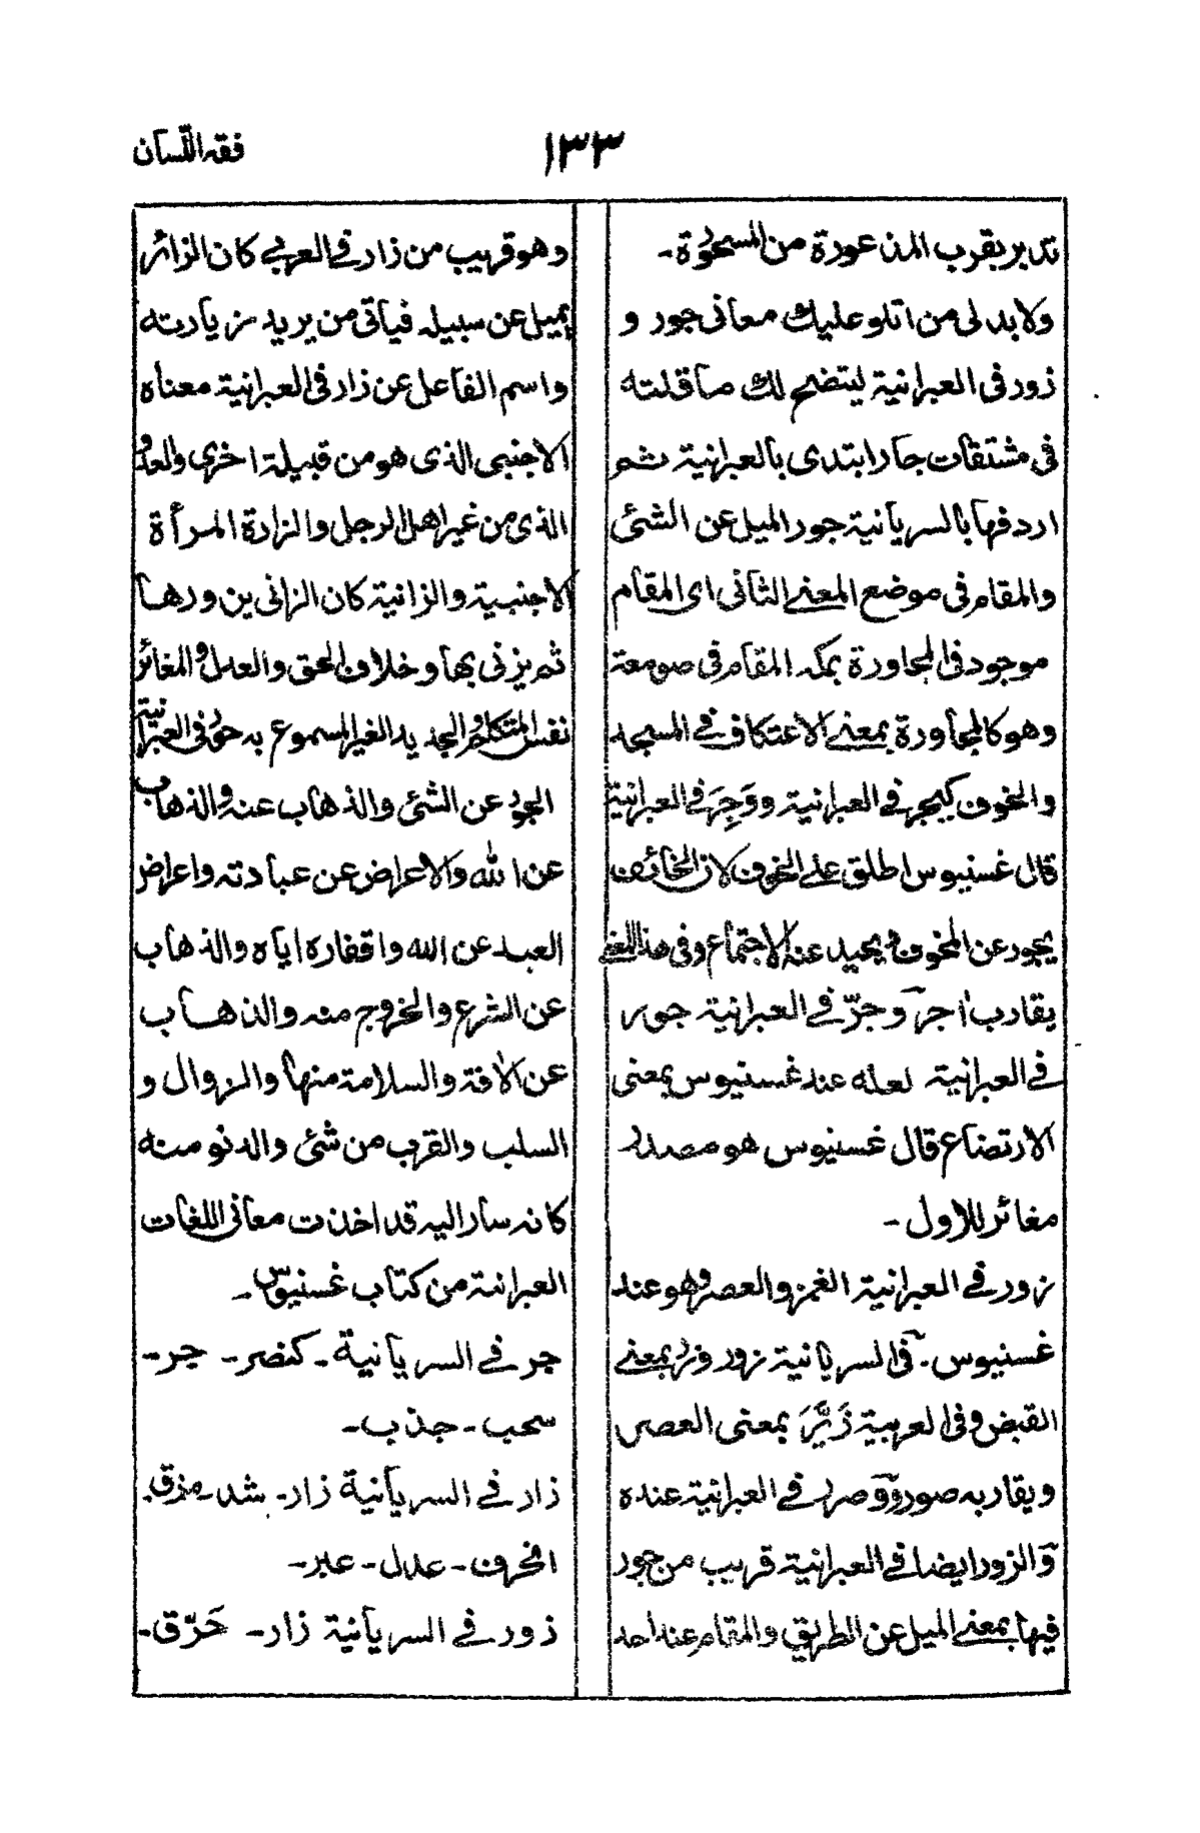 فقه اللّسان
١٣٣
تدبر بقرب المذعورة من المسحورة-
ولا بد لى من اتلو عليك معانى جور و
زور فى العبرانية ليتضح لك ما قلته
فى مشتقات جار ابتدى بالعبرانية ثم
اردفها بالسريانية جور الميل عن الشئ
والمقام فى موضع المعنے الثانى اى المقام
موجود فى المجاورة بمكه المقام فى صومعة
وهو كالمجاورة بمعنے الاعتكاف فے المسجد
والخوف كيجر فے العبرانية ووَجِرَ فے العبرانية
قال غسنيوس اطلق على الخوف لان الخائف
يجور عن المخوف و يحيد عنه الاجتماع وفى هذا المعنے
يقارب اجر و جرّ فے العبرانية جور
فے العبرانية لعله عند غسنيوس بمعنى
الارتضاع قال غسنيوس هو مصدر
مغائر للاول-
زور فے العبرانية الغمز والعصر وهو عند
غسنيوس- فى السريانية زور وزر بمعنے
القبض وفى العربية زَيَّرَ بمعنى العصر
ويقاربه صور و صر فے العبرانية عنده
و الزور ايضا فے العبرانية قريب من جور
فيها بمعنے الميل عن الطريق والمقام عند احد
وهو قريب من زار فے العربى كان الزائر
يميل عن سبيله فيأتى من يريد زيارته
واسم الفاعل عن زار فى العبرانية معناه
الاجنبى الذى هو من قبيلة اخرى والعدو
الذى من غير اهل الرجل والزارة المرأة
الاجنبية والزانية كان الزانى يزورها
ثم يزنى بها وخلاف الحق والعدل والمغائر
نفس المتكلم والجديد الغير المسموع به جور فى العبرانية
الجور عن الشئ والذهاب عنه والذهاب
عن الله والاعراض عن عبادته واعراض
العبد عن الله واقفاره اياه والذهاب
عن الشرع والخروج منه والذهاب
عن الافة والسلامة منها والزوال و
السلب والقرب من شئ والدنو منه
كانه سار اليه قد اخذت معانى اللغات
العبرانية من كتاب غسنيوس-
جر فے السريانية- كنضر- جر-
سحب- جذب-
زار فے السريانية زار- شد- مزق-
انحرف- عدل- عبر-
زور فے السريانية زار- حَرّق-